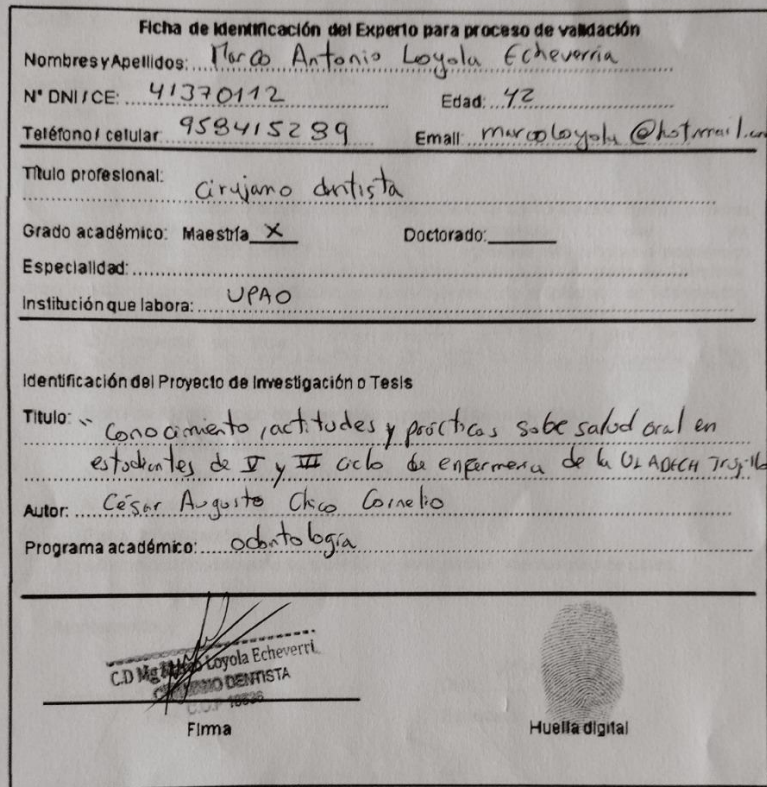 Ficha de Identificación del Experto para proceso de validación
Nombres y Apellidos: Marco Antonio Loyola Echeverria
N° DNI / CE: 41370112 Edad: 42
Teléfono / celular: 958415289 Email: marcoloyola@hotmail.com
Título profesional: Cirujano dentista
Grado académico: Maestría X Doctorado:
Especialidad:
Institución que labora: UPAO
Identificación del Proyecto de Investigación o Tesis
Titulo: " Conocimiento, actitudes y prácticas sobe salud oral en
estudiantes de V y ciclo de enfermeria de la ULADECH Trujillo
Autor: César Augusto Chico Cornelio
Programa académico: odontología
C.D Mg Loyola Echeverri
DENTISTA
C.O.P
Firma
Huella digital